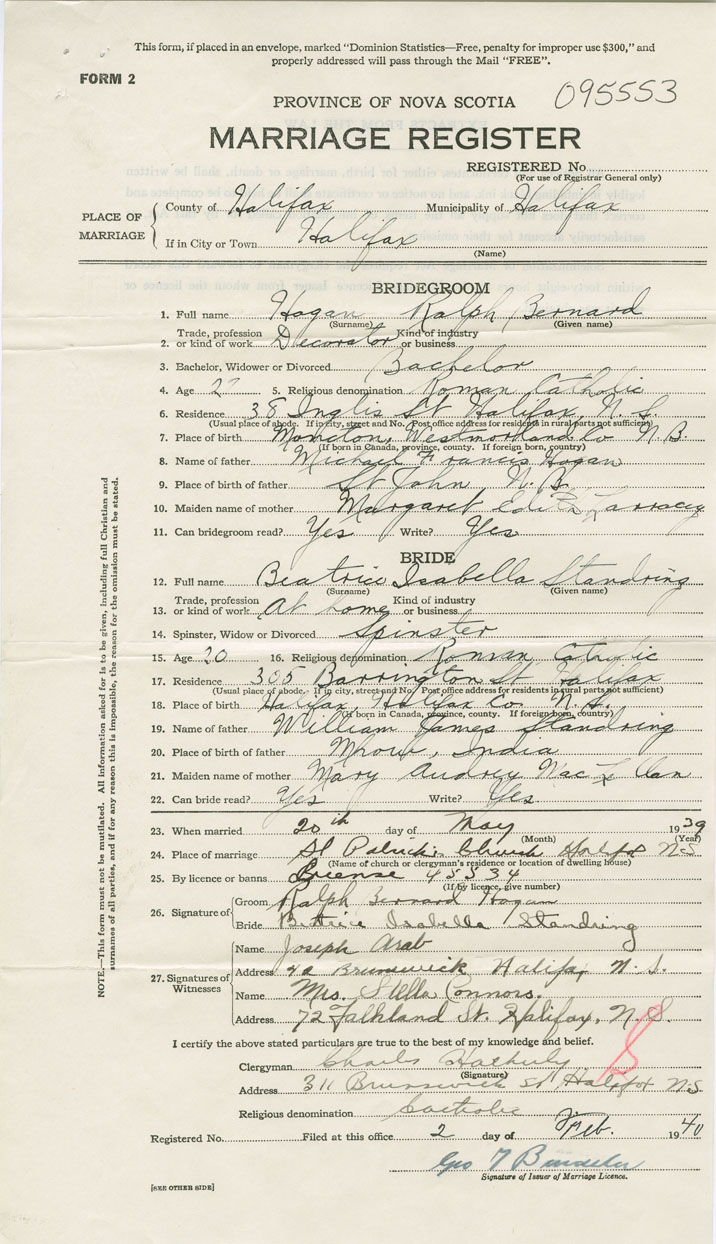 This form, if placed in an envelope, marked "Dominion Statistics—Free, penalty for improper use $300," and
properly addressed will pass through the Mail "FREE".
FORM 2
095553
PROVINCE OF NOVA SCOTIA
MARRIAGE REGISTER
REGISTERED No.
(For use of Registrar General only)
PLACE OF MARRIAGE
County of Halifax Municipality of Halifax
If in City or Town Halifax
(Name)
BRIDEGROOM
1. Full name Hogan Ralph Bernard
(Surname) (Given name)
Trade, profession Kind of industry
2. or kind of work Decorator or business
3. Bachelor, Widower or Divorced Bachelor
4. Age 5. Religious denomination Roman Catholic
6. Residence 38 Inglis St Halifax, N. S.
(Usual place of abode. If in city, street and No. Post office address for residents in rural parts not sufficient)
7. Place of birth Moncton, Westmorland Co N.B.
(If born in Canada, province, county. If foreign born, country)
8. Name of father Michael Francis Hogan
9. Place of birth of father St John N. B.
10. Maiden name of mother Margaret Edith
11. Can bridegroom read? Yes Write? Yes
BRIDE
12. Full name Beatrice Isabella Standring
(Surname) (Given name)
Trade, profession Kind of industry
13. or kind of work At home or business
14. Spinster, Widow or Divorced Spinster
15. Age 20 16. Religious denomination Roman Catholic
17. Residence 305 Barrington St Halifax
(Usual place of abode. If in city, street and No. Post office address for residents in rural parts not sufficient)
18. Place of birth Halifax, Halifax Co. N. S.
(If born in Canada, province, county. If foreign born, country)
19. Name of father William James Standring
20. Place of birth of father India
21. Maiden name of mother Mary Audrey
22. Can bride read? Yes Write? Yes
23. When married 20th day of May 1939
(Month) (Year)
24. Place of marriage St Patrick's Church Halifax N S
(Name of church or clergyman's residence or location of dwelling house)
25. By licence or banns License 45534
(If by licence, give number)
26. Signature of
Groom Ralph Bernard Hogan
Bride Beatrice Isabella Standring
27. Signatures of Witnesses
Name Joseph Arab
Address Brunswick Halifax N. S.
Name Mrs. Stella Connors.
Address 72 Falkland St. Halifax, N. S.
I certify the above stated particulars are true to the best of my knowledge and belief.
Clergyman Charles
(Signature)
Address 311 Brunswick St Halifax N.S.
Religious denomination Catholic
Registered No. Filed at this office 2 day of Feb. 1940
Geo
Signature of Issuer of Marriage Licence.
[SEE OTHER SIDE]
NOTE.—This form must not be mutilated. All information asked for is to be given, including full Christian and
surnames of all parties, and if for any reason this is impossible, the reason for the omission must be stated.